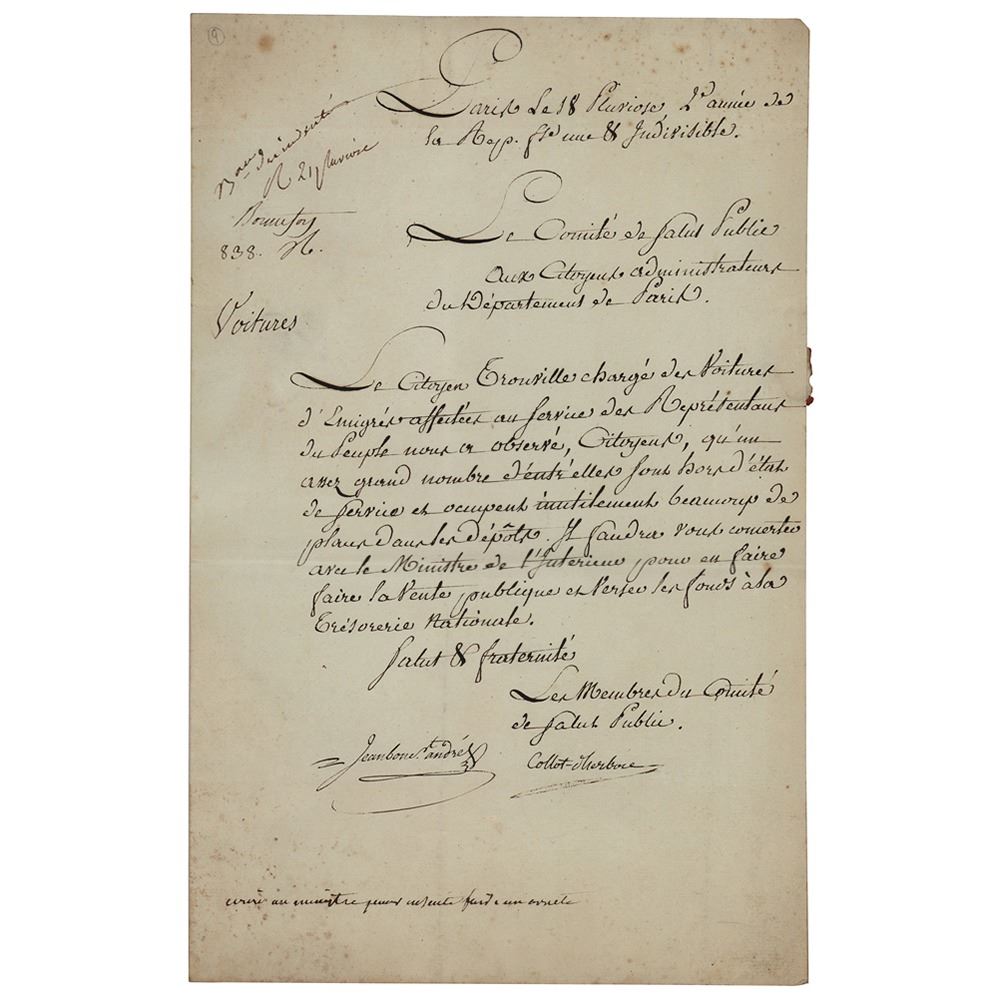 9
Paris Le 18 Pluviose 2e année de
la Rep. fse une & Indivisible.
R 21 pluviose
838.
Le Comité de Salut Public
aux Citoyens administrateurs
du Département de Paris.
Voitures
Le Citoyen Trouville chargé des Voitures
d'Emigrés affectées au Service des Représentans
du Peuple nous a observé, Citoyens, qu'un
assez grand nombre d'entr'elles sont hors d'état
de Service et ocupent inutilement beaucoup de
place dans les dépôts. Il faudra vous concerter
avec le Ministre de l'Interieur pour en faire
faire la Vente publique et Verser les fonds à la
Trésorerie Nationale.
Salut & fraternité
Les Membres du Comité
de Salut Public.
Jeanbon St andré
Collot-d'herbois
ecrire au ministre pour ensuite faire un arreté